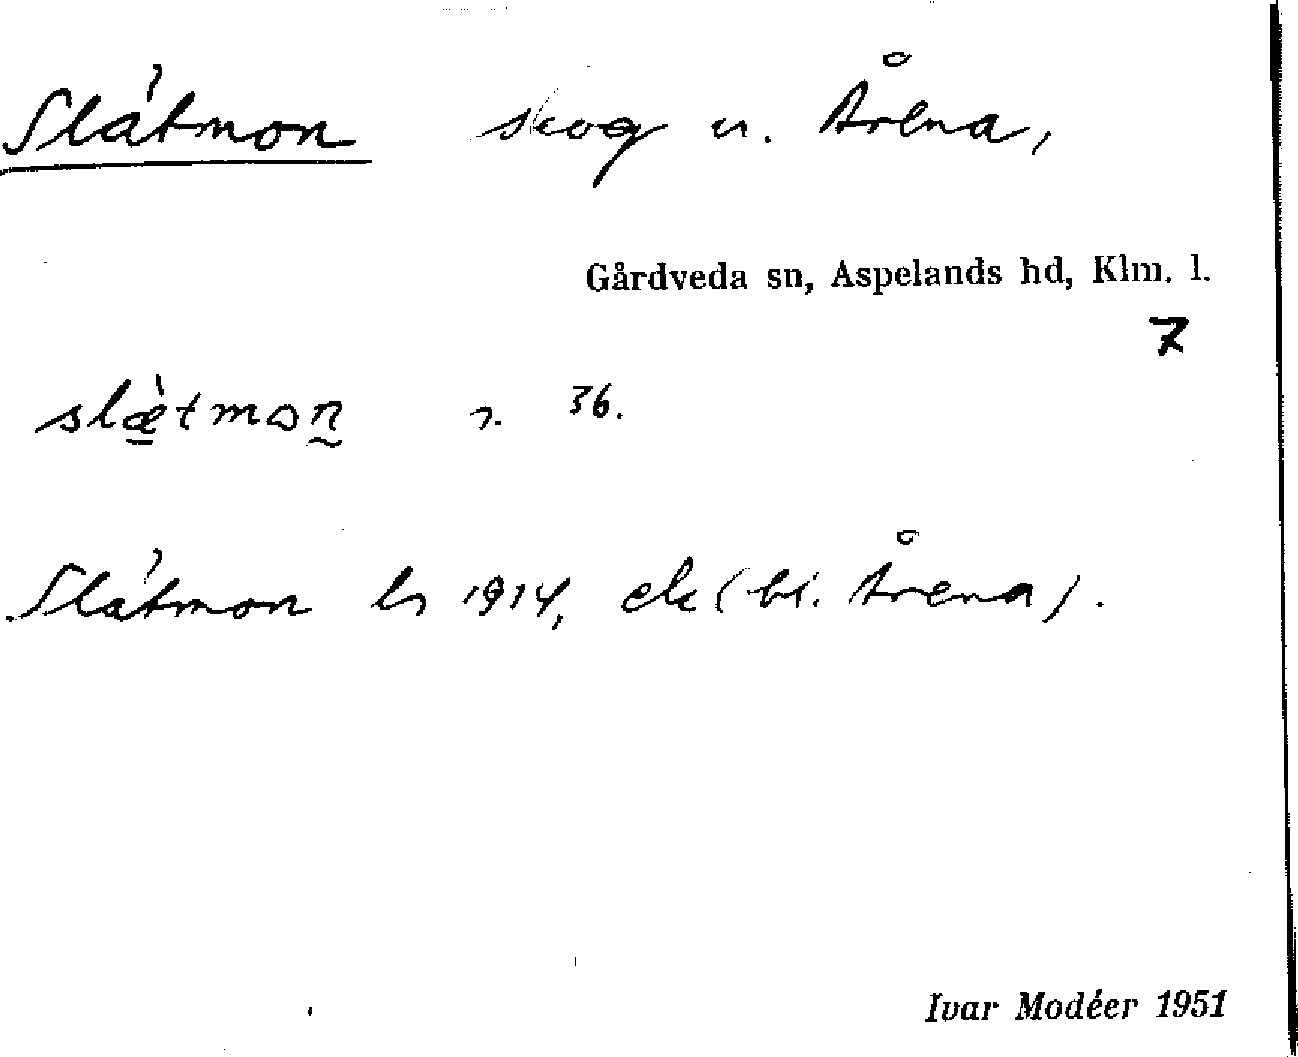 Slätmon skog n. Årena,
Gårdveda sn, Aspelands hd, Klm. l.
7
slæ̀tmon 36.
Slätmon 1914, ek (bl. Årena).
Ivar Modéer 1951